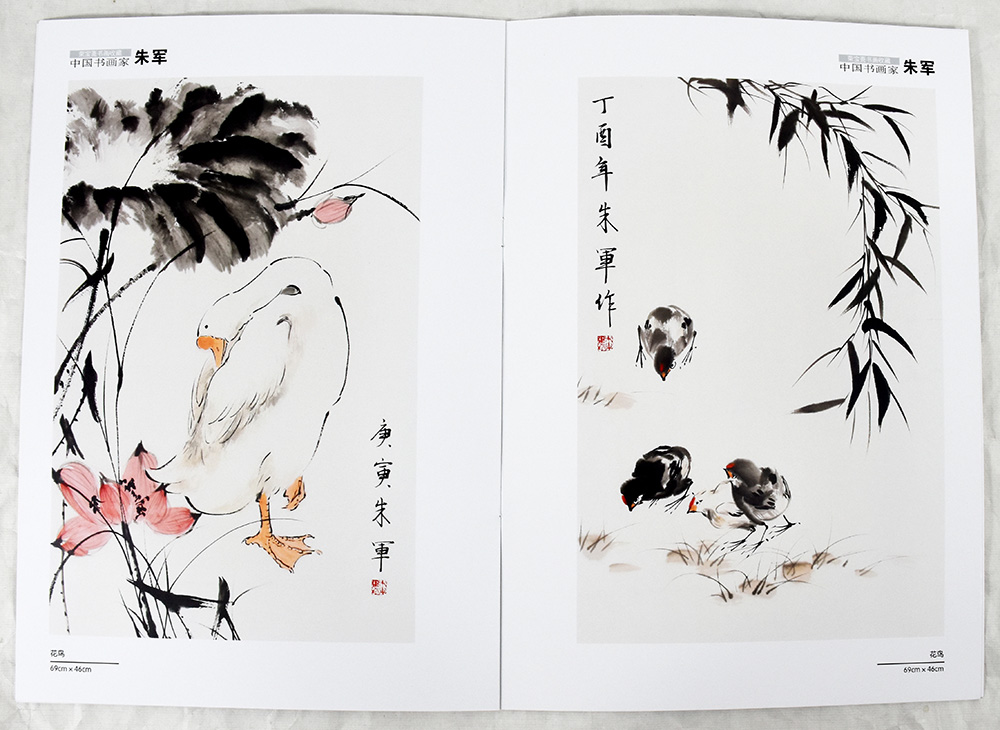 中国书画家 朱军
庚寅朱軍
花鸟
69cm x 46cm
中国书画家 朱军
丁酉年朱軍作
花鸟
69cm x 46cm